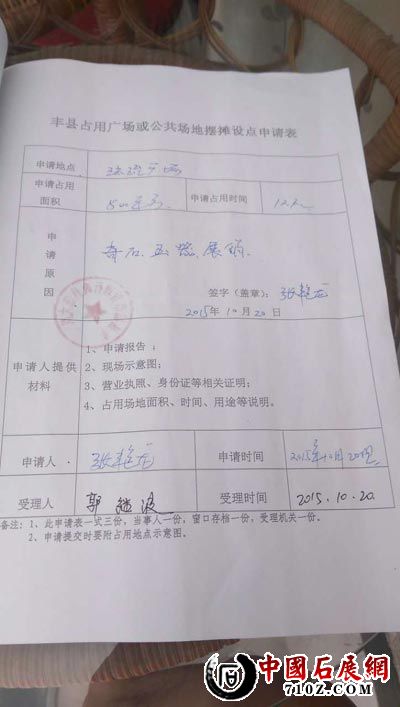 丰县占用广场或公共场地摆摊设点申请表
申请地点
申请占用面积
申请占用时间 12天
申请原因 奇石、玉器、展销.
签字（盖章）：
2015年10月20日
申请人提供材料
1、申请报告；
2、现场示意图；
3、营业执照、身份证等相关证明；
4、占用场地面积、时间、用途等说明。
申请人 申请时间 2015年10月20日
受理人 郭继波 受理时间 2015.10.20.
备注：1、此申请表一式三份，当事人一份，窗口存档一份，受理机关一份。
2、申请提交时要附占用地点示意图。
中國石展網
7102.COM